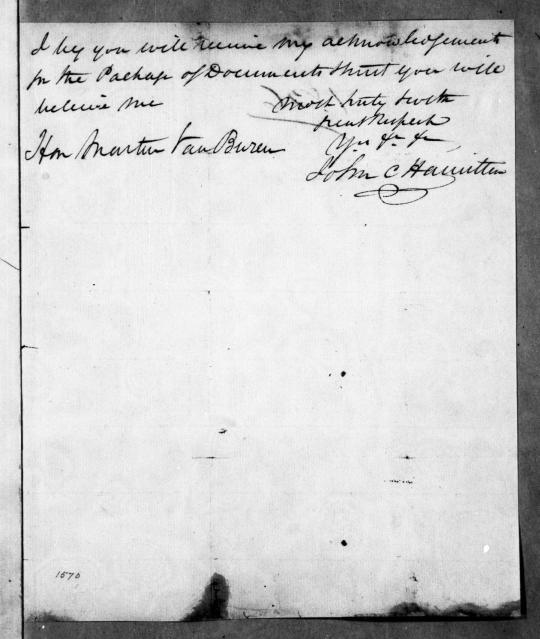 I beg you will receive my acknowledgements
for the Package of Documents & trust you will
believe me
most truly & with
great Respect
Yrs &c &c
John C Hamilton
Hon Martin Van Buren
1570